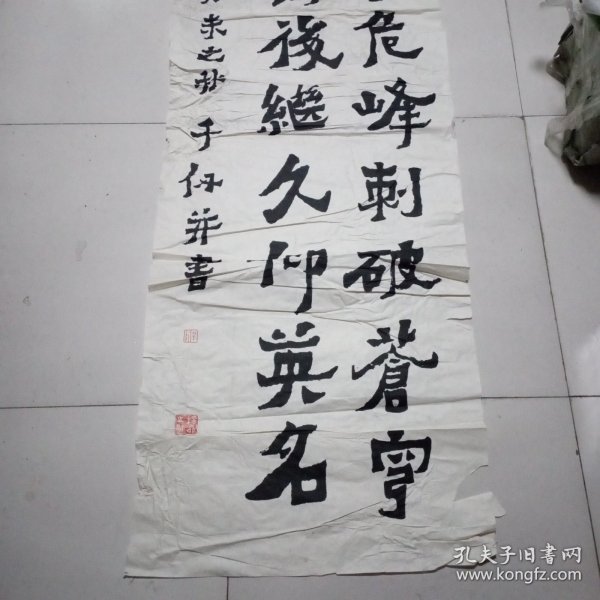 危峰刺破蒼穹
後繼久仰英名
未之秋 于仞并書
孔夫子旧书网
www.kongfz.com